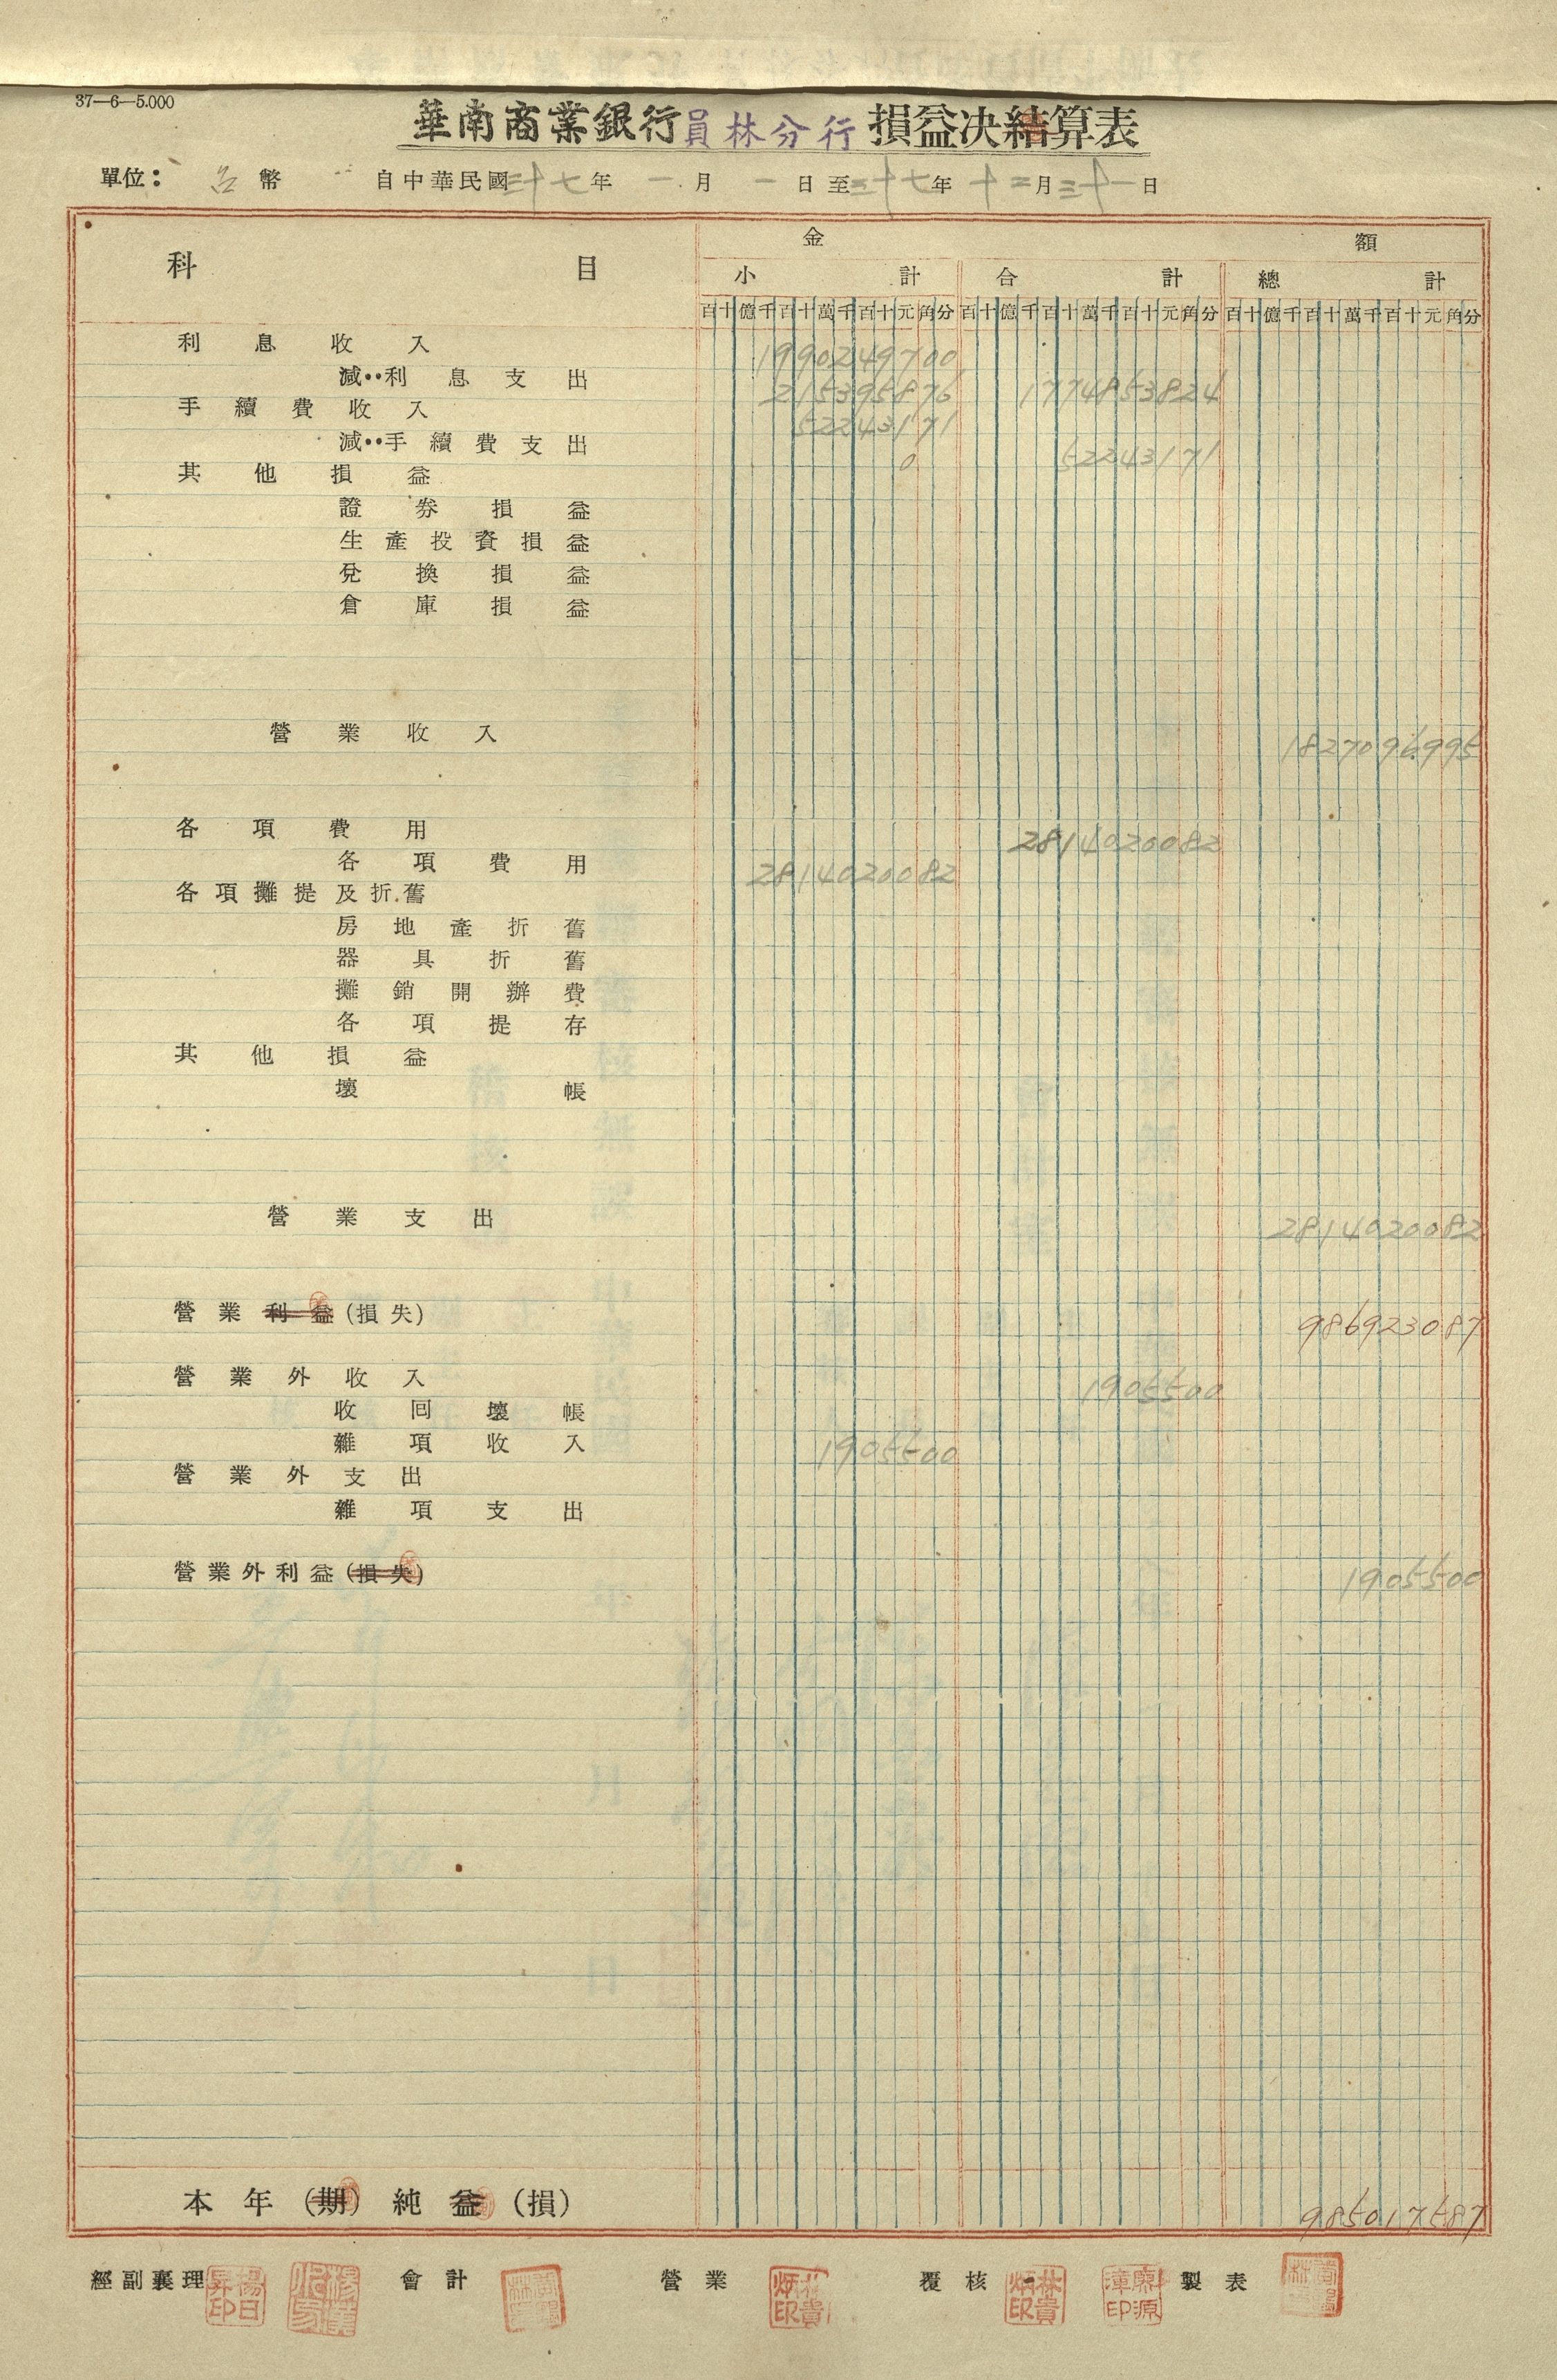 37—6—5.000
華南商業銀行員林分行 損益決結算表
單位：台幣 自中華民國三十七年一月一日至三十七年十二月三十一日
科目 金額
小計 合計 總計
百十億千百十萬千百十元角分 百十億千百十萬千百十元角分 百十億千百十萬千百十元角分
利息收入 1990249700
減：利息支出 215395876 1774853824
手續費收入 52243171
減：手續費支出 0 52243171
其他損益
證券損益
生產投資損益
兌換損益
倉庫損益
營業收入 1827096995
各項費用 2814020082
各項費用 2814020082
各項攤提及折舊
房地產折舊
器具折舊
攤銷開辦費
各項提存
其他損益
壞帳
營業支出 2814020082
營業利益(損失) 986923087
營業外收入 1905500
收回壞帳
雜項收入 1905500
營業外支出
雜項支出
營業外利益(損失) 1905500
本年(期)純益(損) 985017587
經副襄理 楊日昇印 會計 營業 林貴炳印 覆核 林貴炳印 廖源漳印 製表